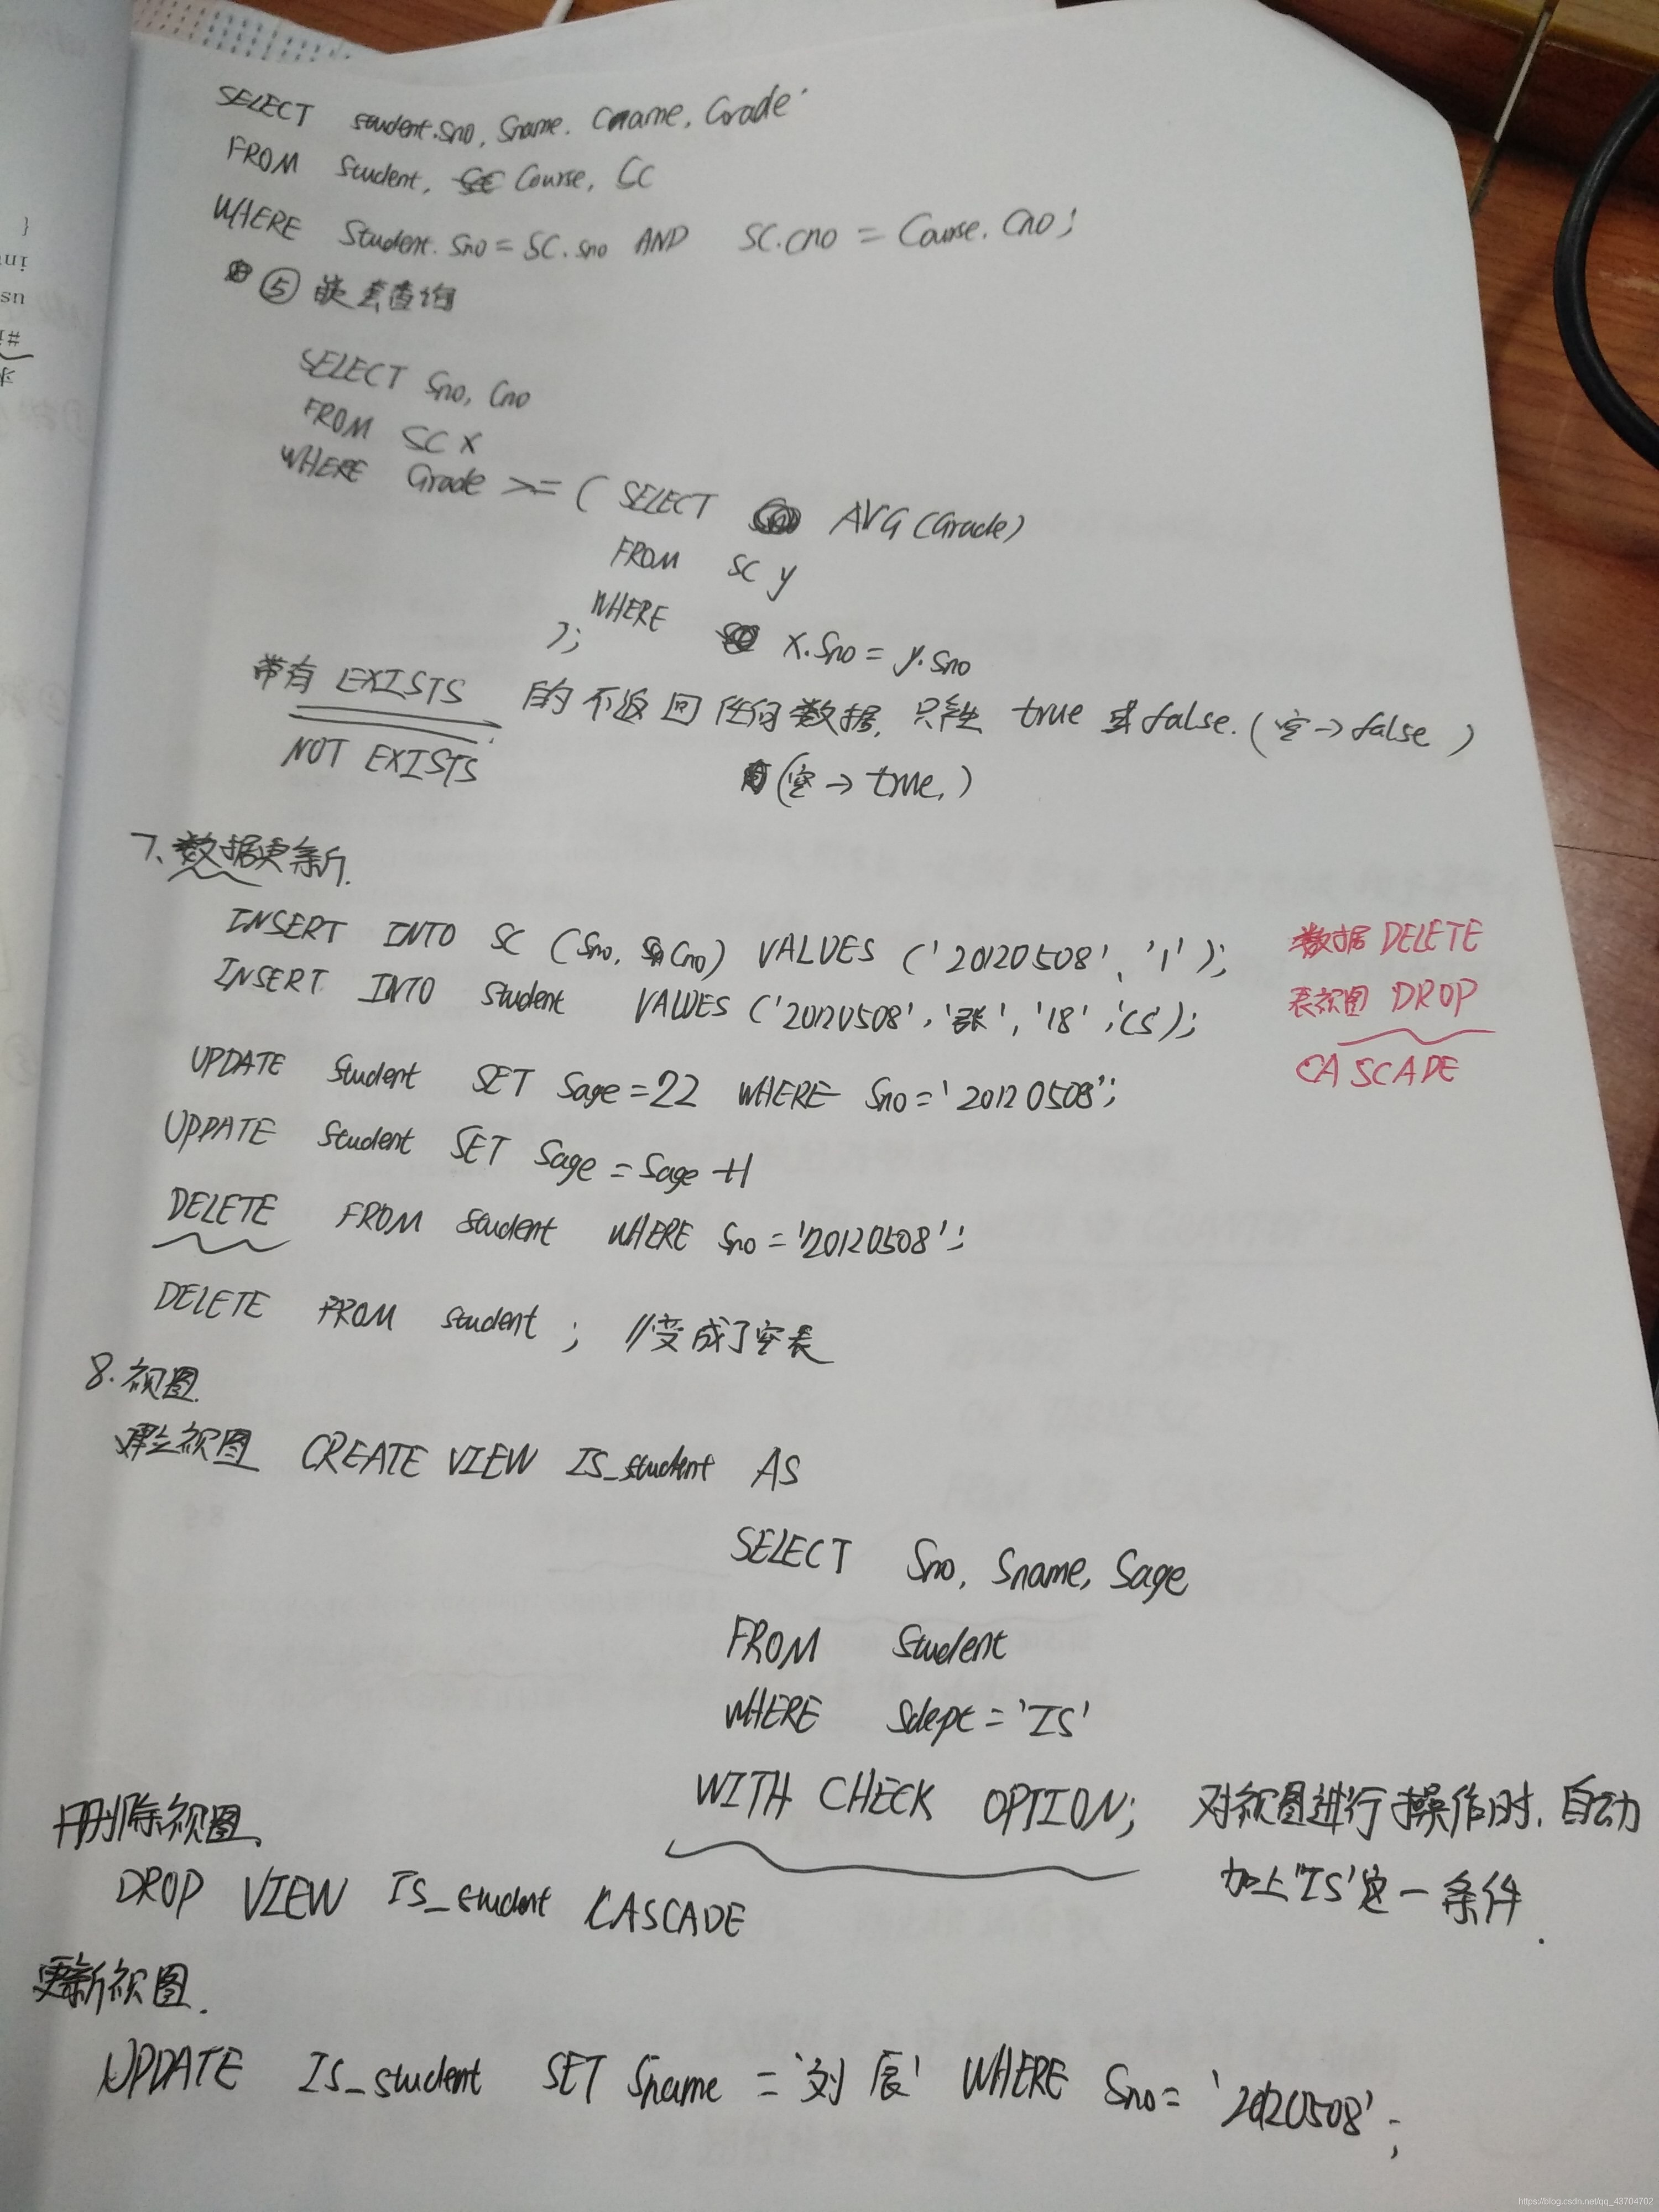 SELECT student.Sno, Sname. Cname, Grade
FROM Student, Course, SC
WHERE Student.Sno = SC.Sno AND SC.Cno = Course.Cno;
⑤ 嵌套查询
SELECT Sno, Cno
FROM SC x
WHERE Grade >= ( SELECT AVG(Grade)
FROM SC y
WHERE x.Sno = y.Sno
);
带有 EXISTS 的不返回任何数据, 只产生 true 或 false. (空→false)
NOT EXISTS (空→true,)
7、数据更新.
INSERT INTO SC (Sno, Cno) VALUES ('20120508', '1');
INSERT INTO Student VALUES ('20120508', '张', '18', 'CS');
数据 DELETE
表视图 DROP
CASCADE
UPDATE Student SET Sage=22 WHERE Sno='20120508';
UPDATE Student SET Sage = Sage +1
DELETE FROM student WHERE Sno='20120508';
DELETE FROM student ; //变成了空表
8. 视图.
建立视图 CREATE VIEW IS_student AS
SELECT Sno, Sname, Sage
FROM Student
WHERE Sdept='IS'
WITH CHECK OPTION; 对视图进行操作时, 自动
加上'IS'这一条件.
删除视图、
DROP VIEW IS_student CASCADE
更新视图.
UPDATE IS_student SET Sname = '刘辰' WHERE Sno= '20120508';
https://blog.csdn.net/qq_43704702